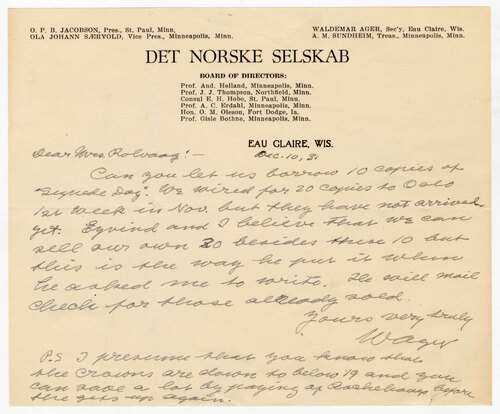 O. P. B. JACOBSON, Pres., St. Paul, Minn.
OLA JOHANN SÆRVOLD, Vice Pres., Minneapolis, Minn.
WALDEMAR AGER, Sec'y, Eau Claire, Wis.
A. M. SUNDHEIM, Treas., Minneapolis, Minn.
DET NORSKE SELSKAB
BOARD OF DIRECTORS:
Prof. And. Helland, Minneapolis, Minn.
Prof. J. J. Thompson, Northfield, Minn.
Consul E. H. Hobe, St. Paul, Minn.
Prof. A. C. Erdahl, Minneapolis, Minn.
Hon. O. M. Oleson, Fort Dodge, Ia.
Prof. Gisle Bothne, Minneapolis, Minn.
EAU CLAIRE, WIS.
Dec. 10, 31
Dear Mrs. Rolvaag:-
Can you let us borrow 10 copies of
"Signede Dag". We wired for 20 copies to Oslo
1st week in Nov. but they have not arrived
yet. Eyvind and I believe that we can
sell our own 20 besides these 10 but
this is the way he put it when
he asked me to write. He will mail
check for those already sold.
Yours very truly
W Ager
P.S I presume that you know that
the crowns are down to below 19 and you
can save a lot by paying of before
the gets up again.